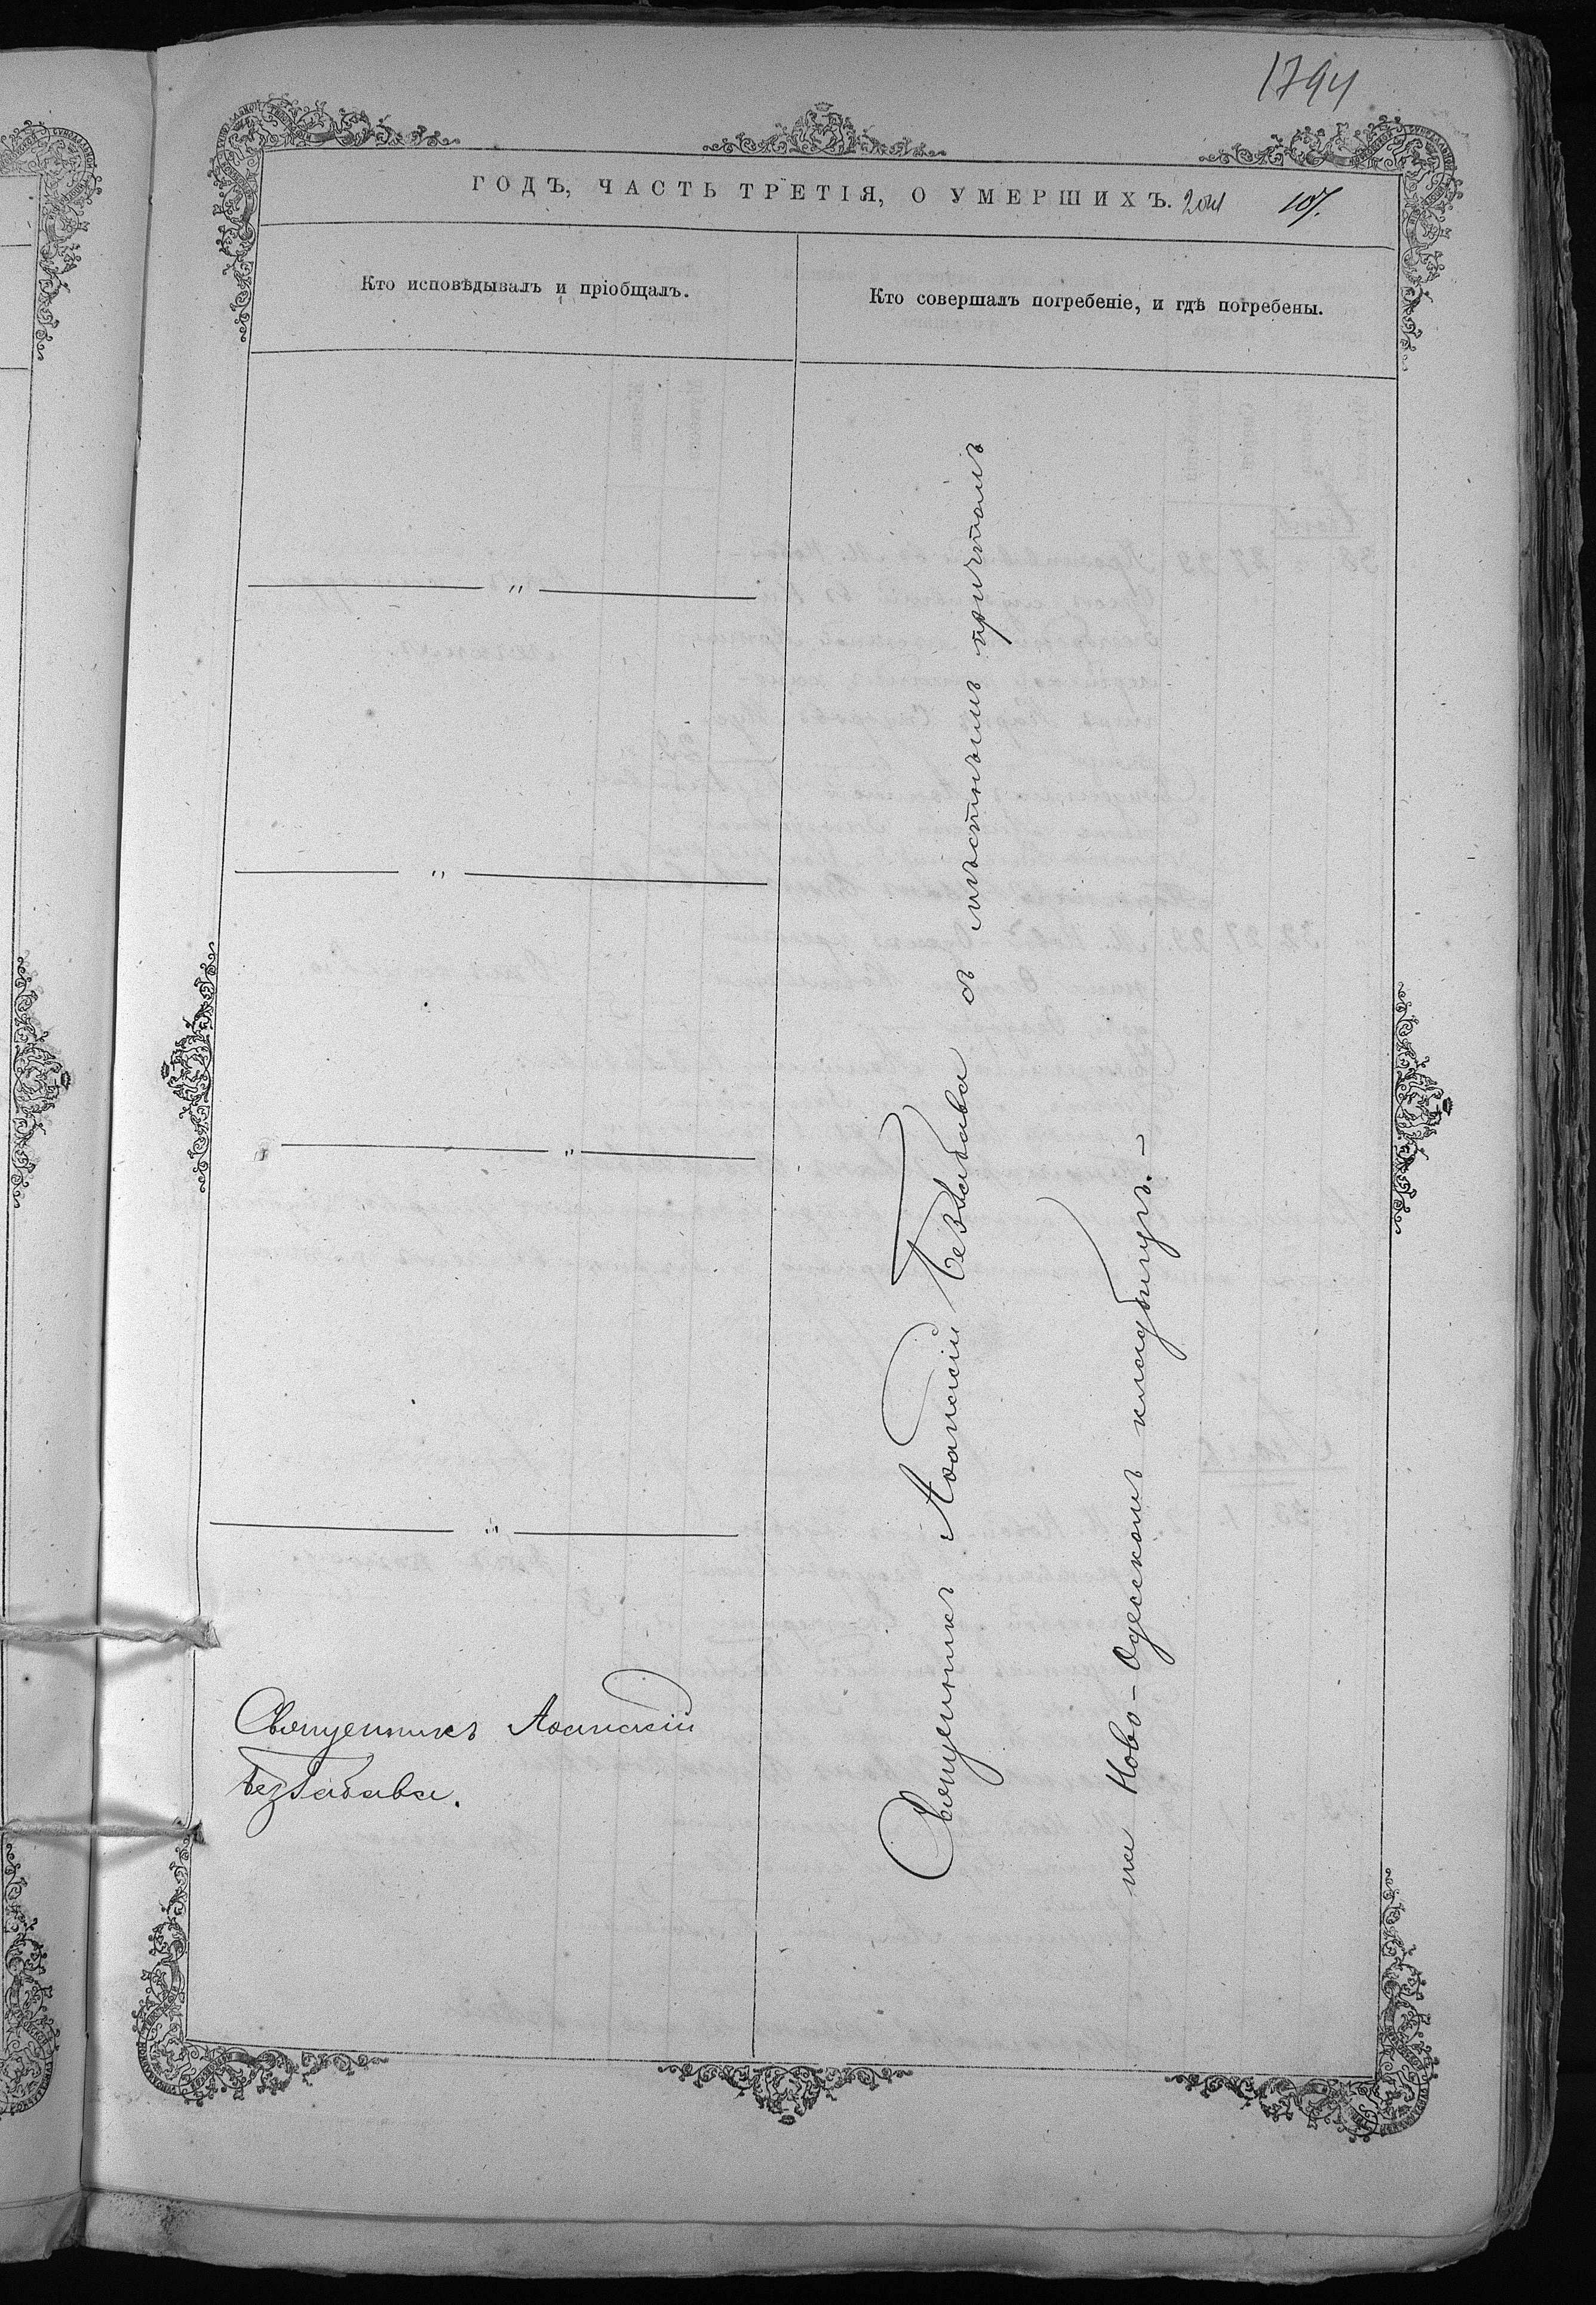 1794
ГОДЪ, ЧАСТЬ ТРЕТІЯ, О УМЕРШИХЪ. 107.
Кто исповѣдывалъ и пріобщалъ.
Кто совершалъ погребеніе, и гдѣ погребены.
— „ —
— „ —
— „ —
— „ —
Священникъ Аѳанасій
Беззабава.
Священникъ Аѳанасій Беззабава съ мѣстнымъ причтомъ
на Ново-Одесскомъ кладбищѣ. —